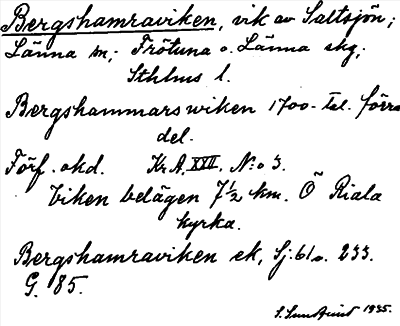 Bergshamraviken, vik av Saltsjön;
Länna sn,- Frötuna o. Länna skg,
Sthlms l.
Bergshammarswiken 1700-tal. förra
del.
Förf. okd. Kr.A. XXII. N:o 3.
Viken belägen 7 1/2 km. Ö Riala
kyrka.
Bergshamraviken ek, Sj. 61 o. 233.
G. 85.
1935.